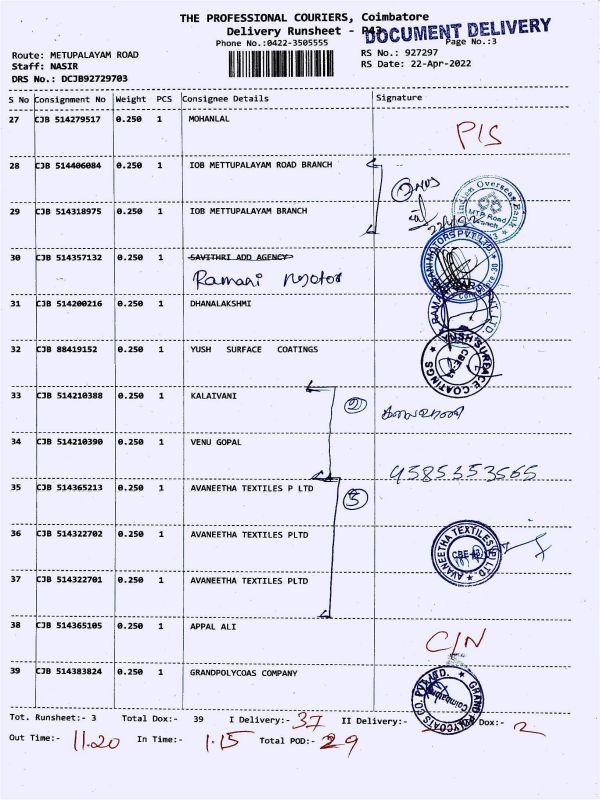 THE PROFESSIONAL COURIERS, Coimbatore
Delivery Runsheet - P43
DOCUMENT DELIVERY
Phone No.:0422-3505555
Page No.:3
Route: METUPALAYAM ROAD
RS No.: 927297
Staff: NASIR
RS Date: 22-Apr-2022
DRS No.: DCJB92729703
S No Consignment No Weight PCS Consignee Details Signature
27 CJB 514279517 0.250 1 MOHANLAL
P/S
28 CJB 514406084 0.250 1 IOB METTUPALAYAM ROAD BRANCH
Indian Overseas Bank
MTP Road
Branch
29 CJB 514318975 0.250 1 IOB METTUPALAYAM BRANCH
30 CJB 514357132 0.250 1 SAVITHRI ADD AGENCY
Ramani Motor
31 CJB 514200216 0.250 1 DHANALAKSHMI
32 CJB 88419152 0.250 1 YUSH SURFACE COATINGS
YUSH SURFACE COATINGS
33 CJB 514210388 0.250 1 KALAIVANI
2
34 CJB 514210390 0.250 1 VENU GOPAL
35 CJB 514365213 0.250 1 AVANEETHA TEXTILES P LTD
36 CJB 514322702 0.250 1 AVANEETHA TEXTILES PLTD
AVANEETHA TEXTILES P LTD.
37 CJB 514322701 0.250 1 AVANEETHA TEXTILES PLTD
38 CJB 514365105 0.250 1 APPAL ALI
C/N
39 CJB 514383824 0.250 1 GRANDPOLYCOAS COMPANY
GRAND POLYCOATS CO. PVT. LTD.
Coimbatore
Tot. Runsheet:- 3 Total Dox:- 39 I Delivery:- 37 II Delivery:- Dox:- 2
Out Time:- 11.20 In Time:- 1.15 Total POD:- 29